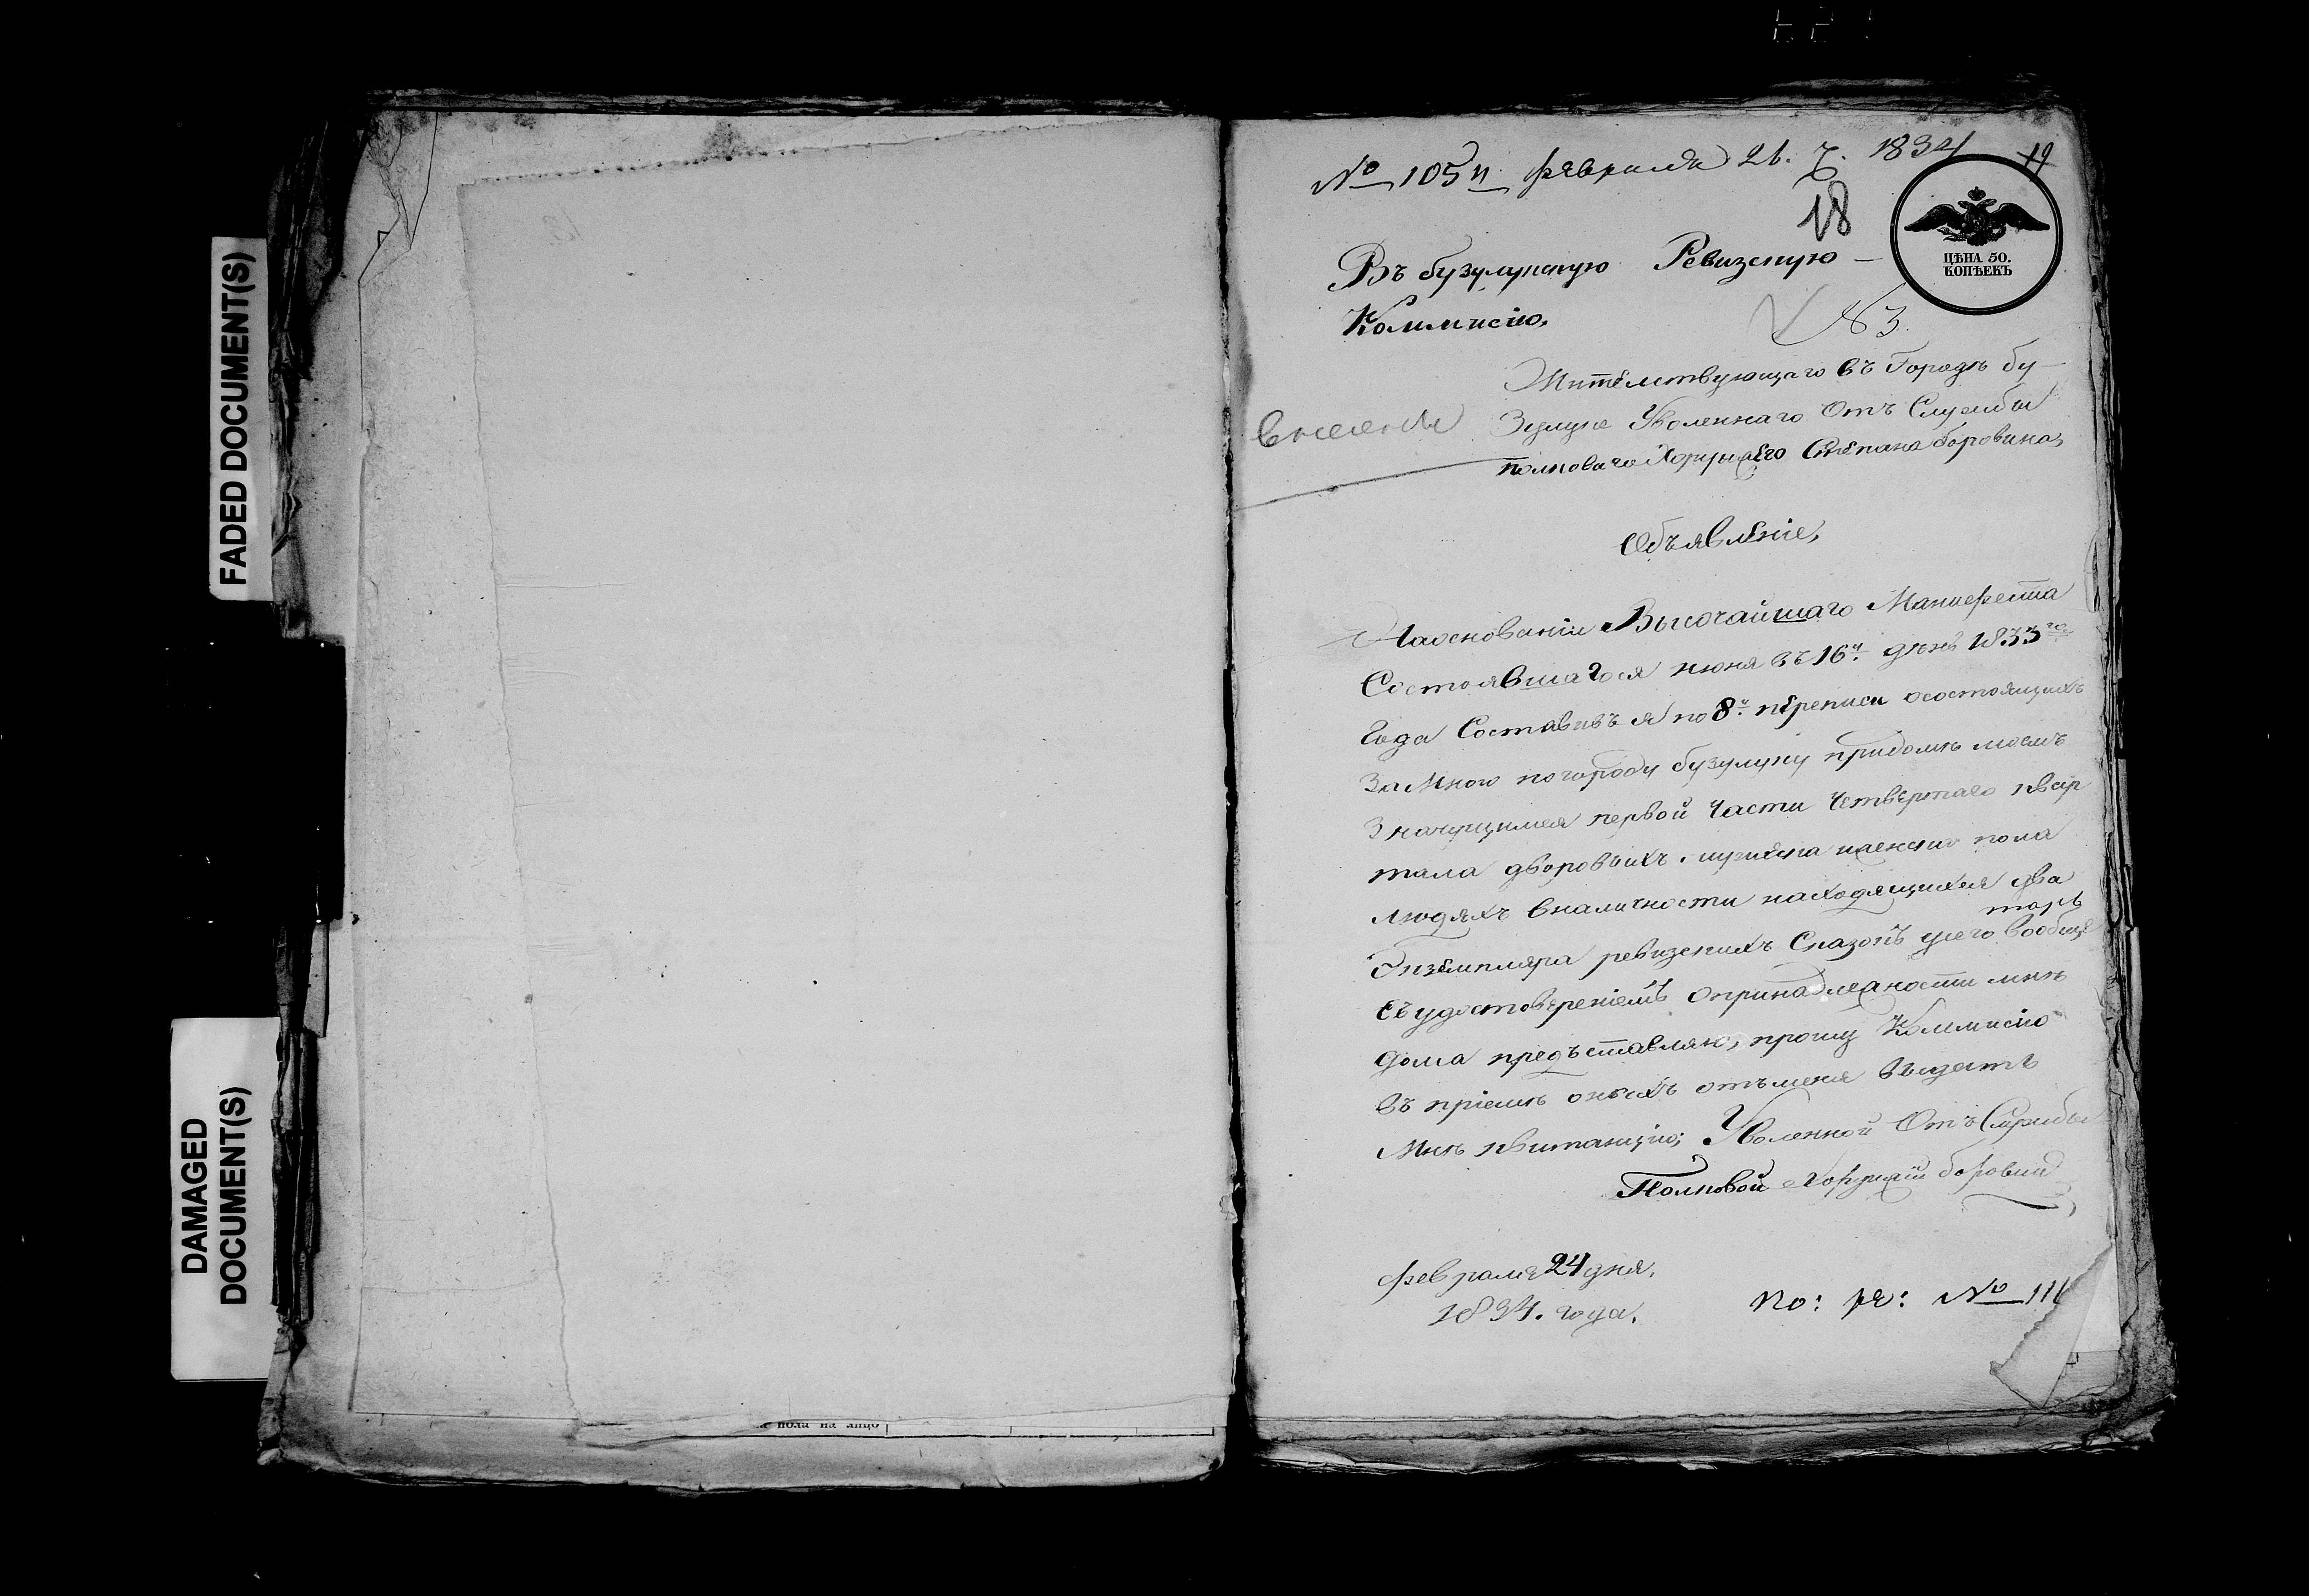 FADED DOCUMENT(S)
DAMAGED
DOCUMENT(S)
пола на лицо
№ 105й февраля 21. 1834
19
18
ЦѢНА 50.
КОПѢЕКЪ
Въ бузулускую Ревизскую –
Коммисію,
№ 3.
Жителствующаго въ Городѣ бу-
внесены
Зулуке Уволеннаго Отъ Службы
полковаго Хорунжего Степана боровина,
Объявленіе,
Наоснованіи Высочайшаго Манифеста
Состоявшагося июня въ 16й день 1833го
Года Составивъ я по 8й переписи осостоящихъ
За Мною погороду бузулуку придомѣ моемъ
Значущимся первой Части Четвертаго квар
тала дворовыхъ мужеска иженска пола
людяхъ вналичности находящихся два
Экземпляра ревизскихъ Сказокъ вообще
съ удостовереніемъ опринадлежности мнѣ
дома предъставляю, прошу Коммисію
въ пріемѣ оныхъ отъ меня выдать
Мнѣ квитанцію; Уволенной Отъ Службы
Полковой Хорунжій боровин
февраля 24 дня.
1834. года.
по: ре: № 111